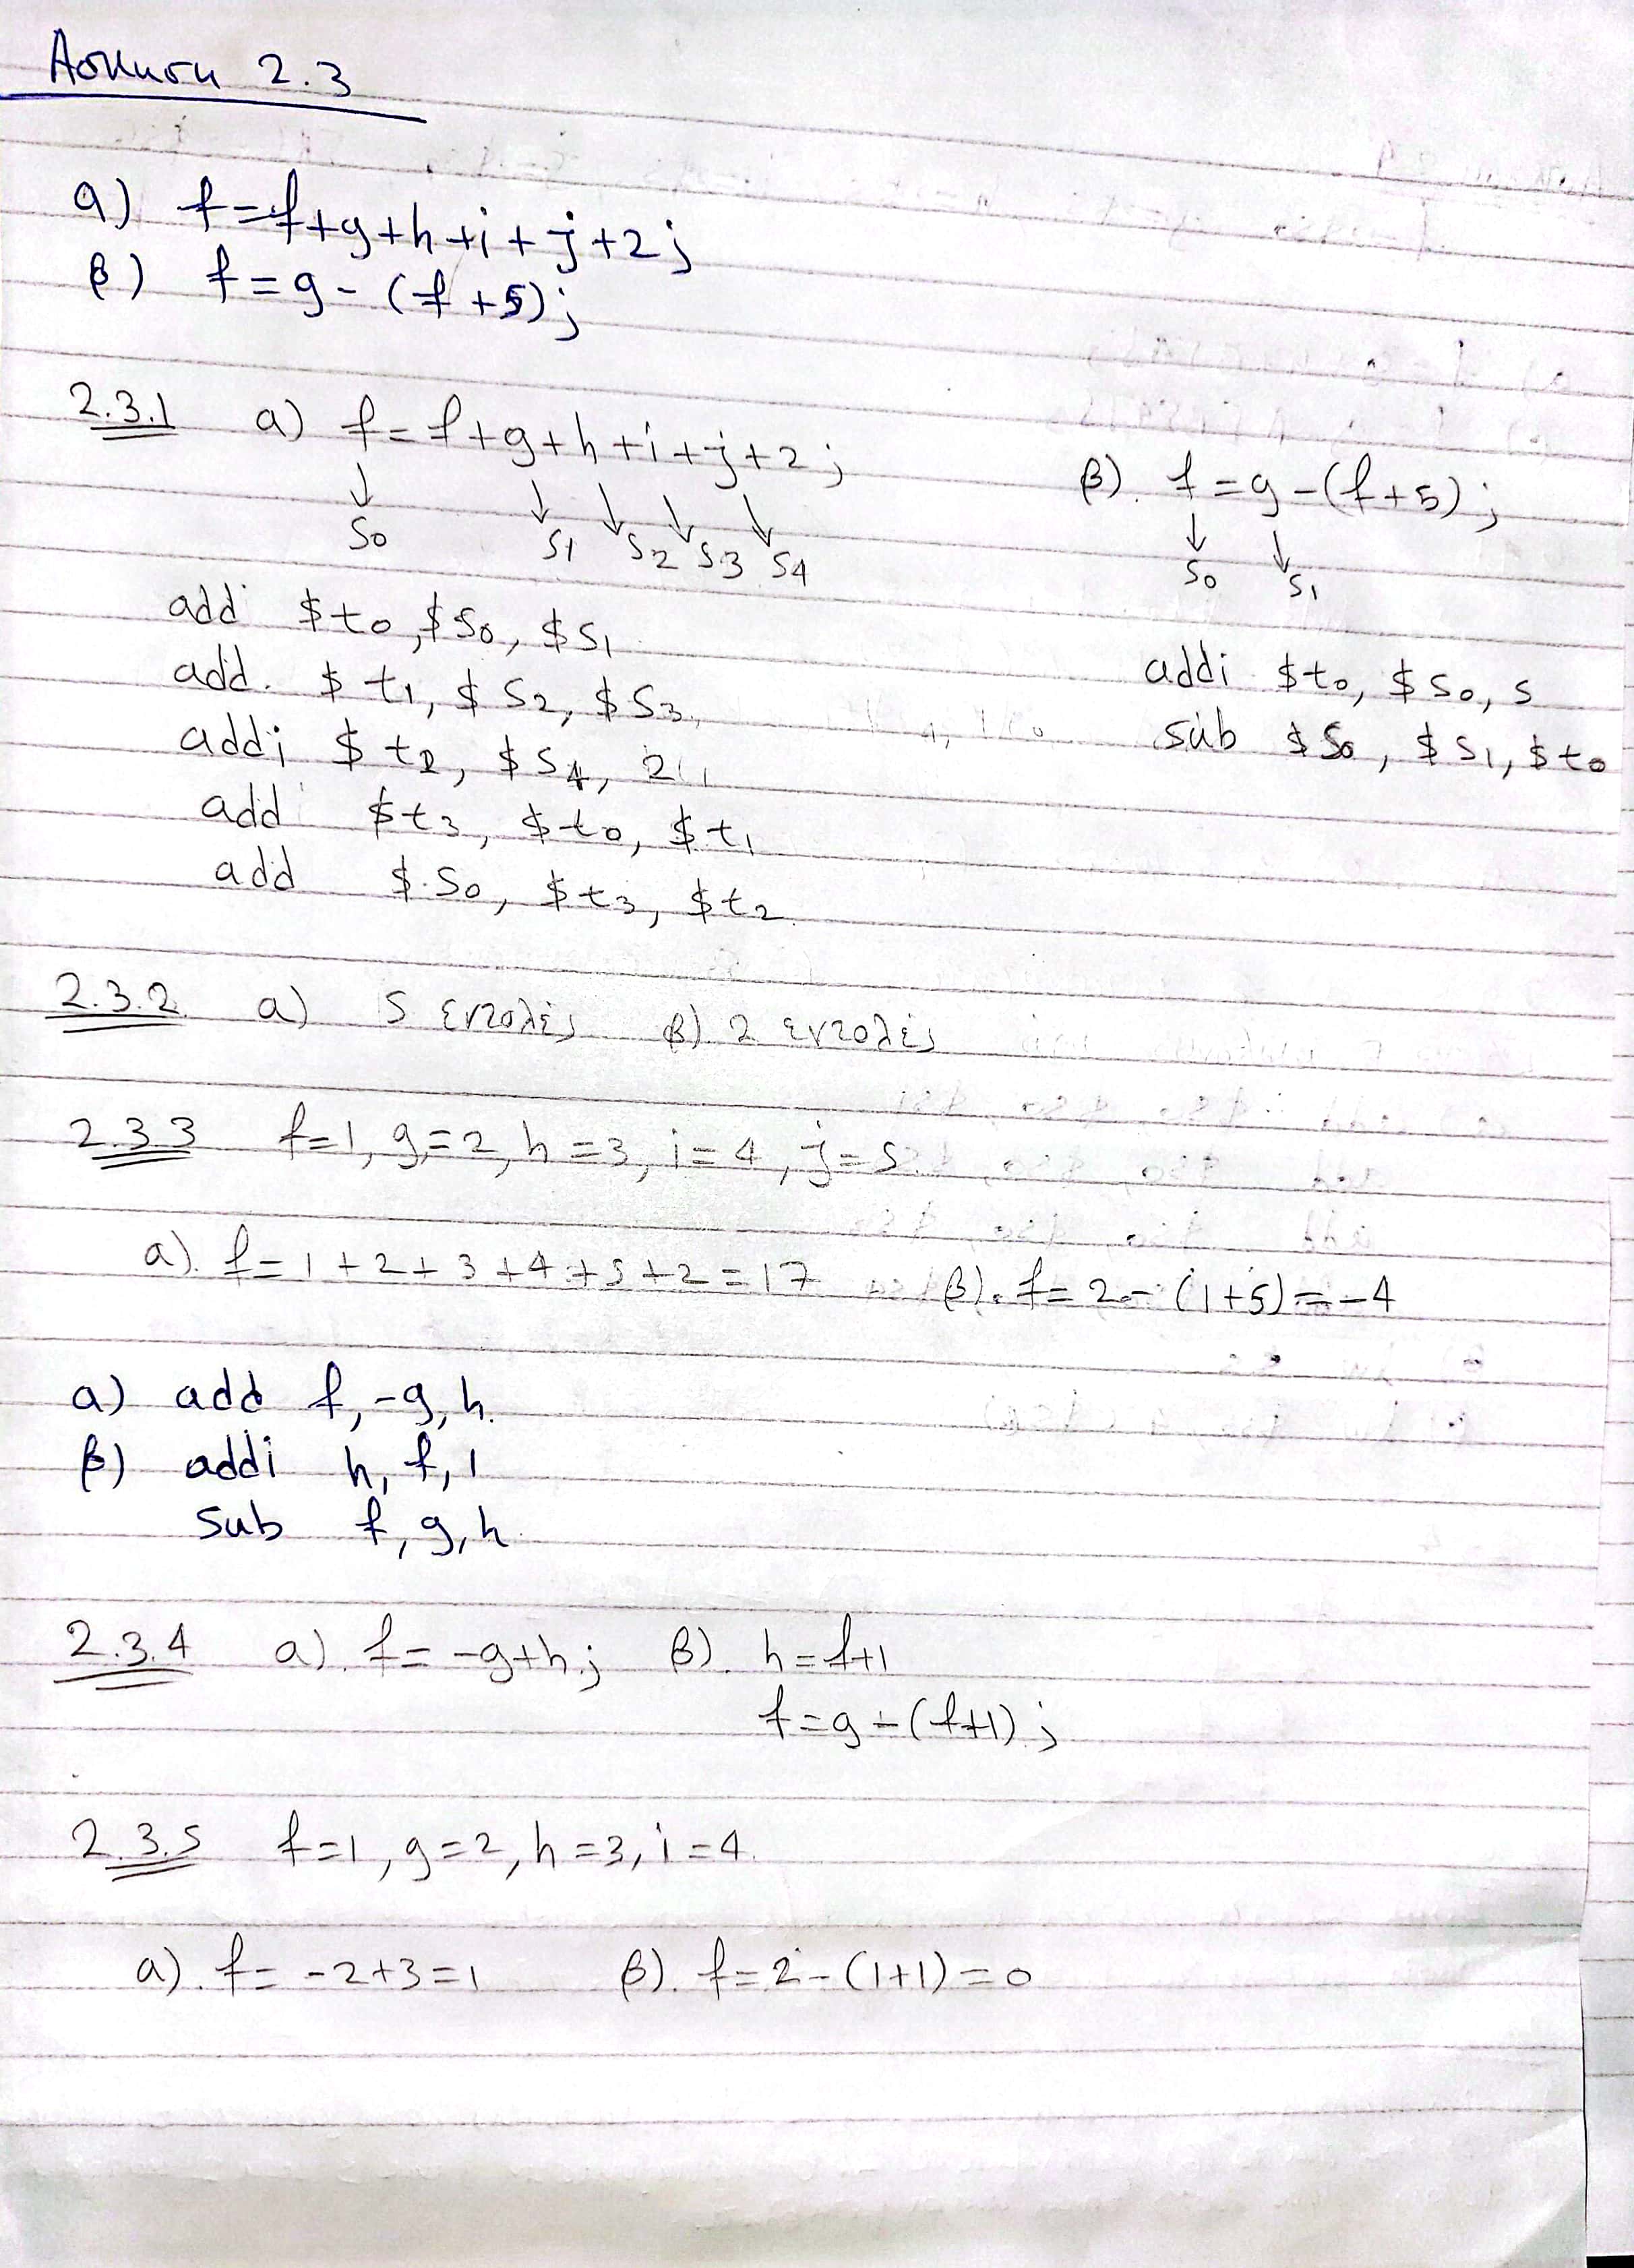 Άσκηση 2.3
α) f=f+g+h+i+j+2;
β) f=g-(f+5);
2.3.1 α) f=f+g+h+i+j+2;
s0 s1 s2 s3 s4
add $t0, $s0, $s1
add $t1, $s2, $s3
addi $t2, $s4, 2
add $t3, $t0, $t1
add $s0, $t3, $t2
β). f=g-(f+5);
s0 s1
addi $t0, $s0, 5
sub $s0, $s1, $t0
2.3.2 α) 5 εντολές β) 2 εντολές
2.3.3 f=1, g=2, h=3, i=4, j=5
α). f=1+2+3+4+5+2=17 β). f=2-(1+5)=-4
α) add f,-g,h
β) addi h, f, 1
sub f, g, h
2.3.4 α). f=-g+h; β). h=f+1
f=g-(f+1);
2.3.5 f=1, g=2, h=3, i=4
α). f=-2+3=1 β). f=2-(1+1)=0